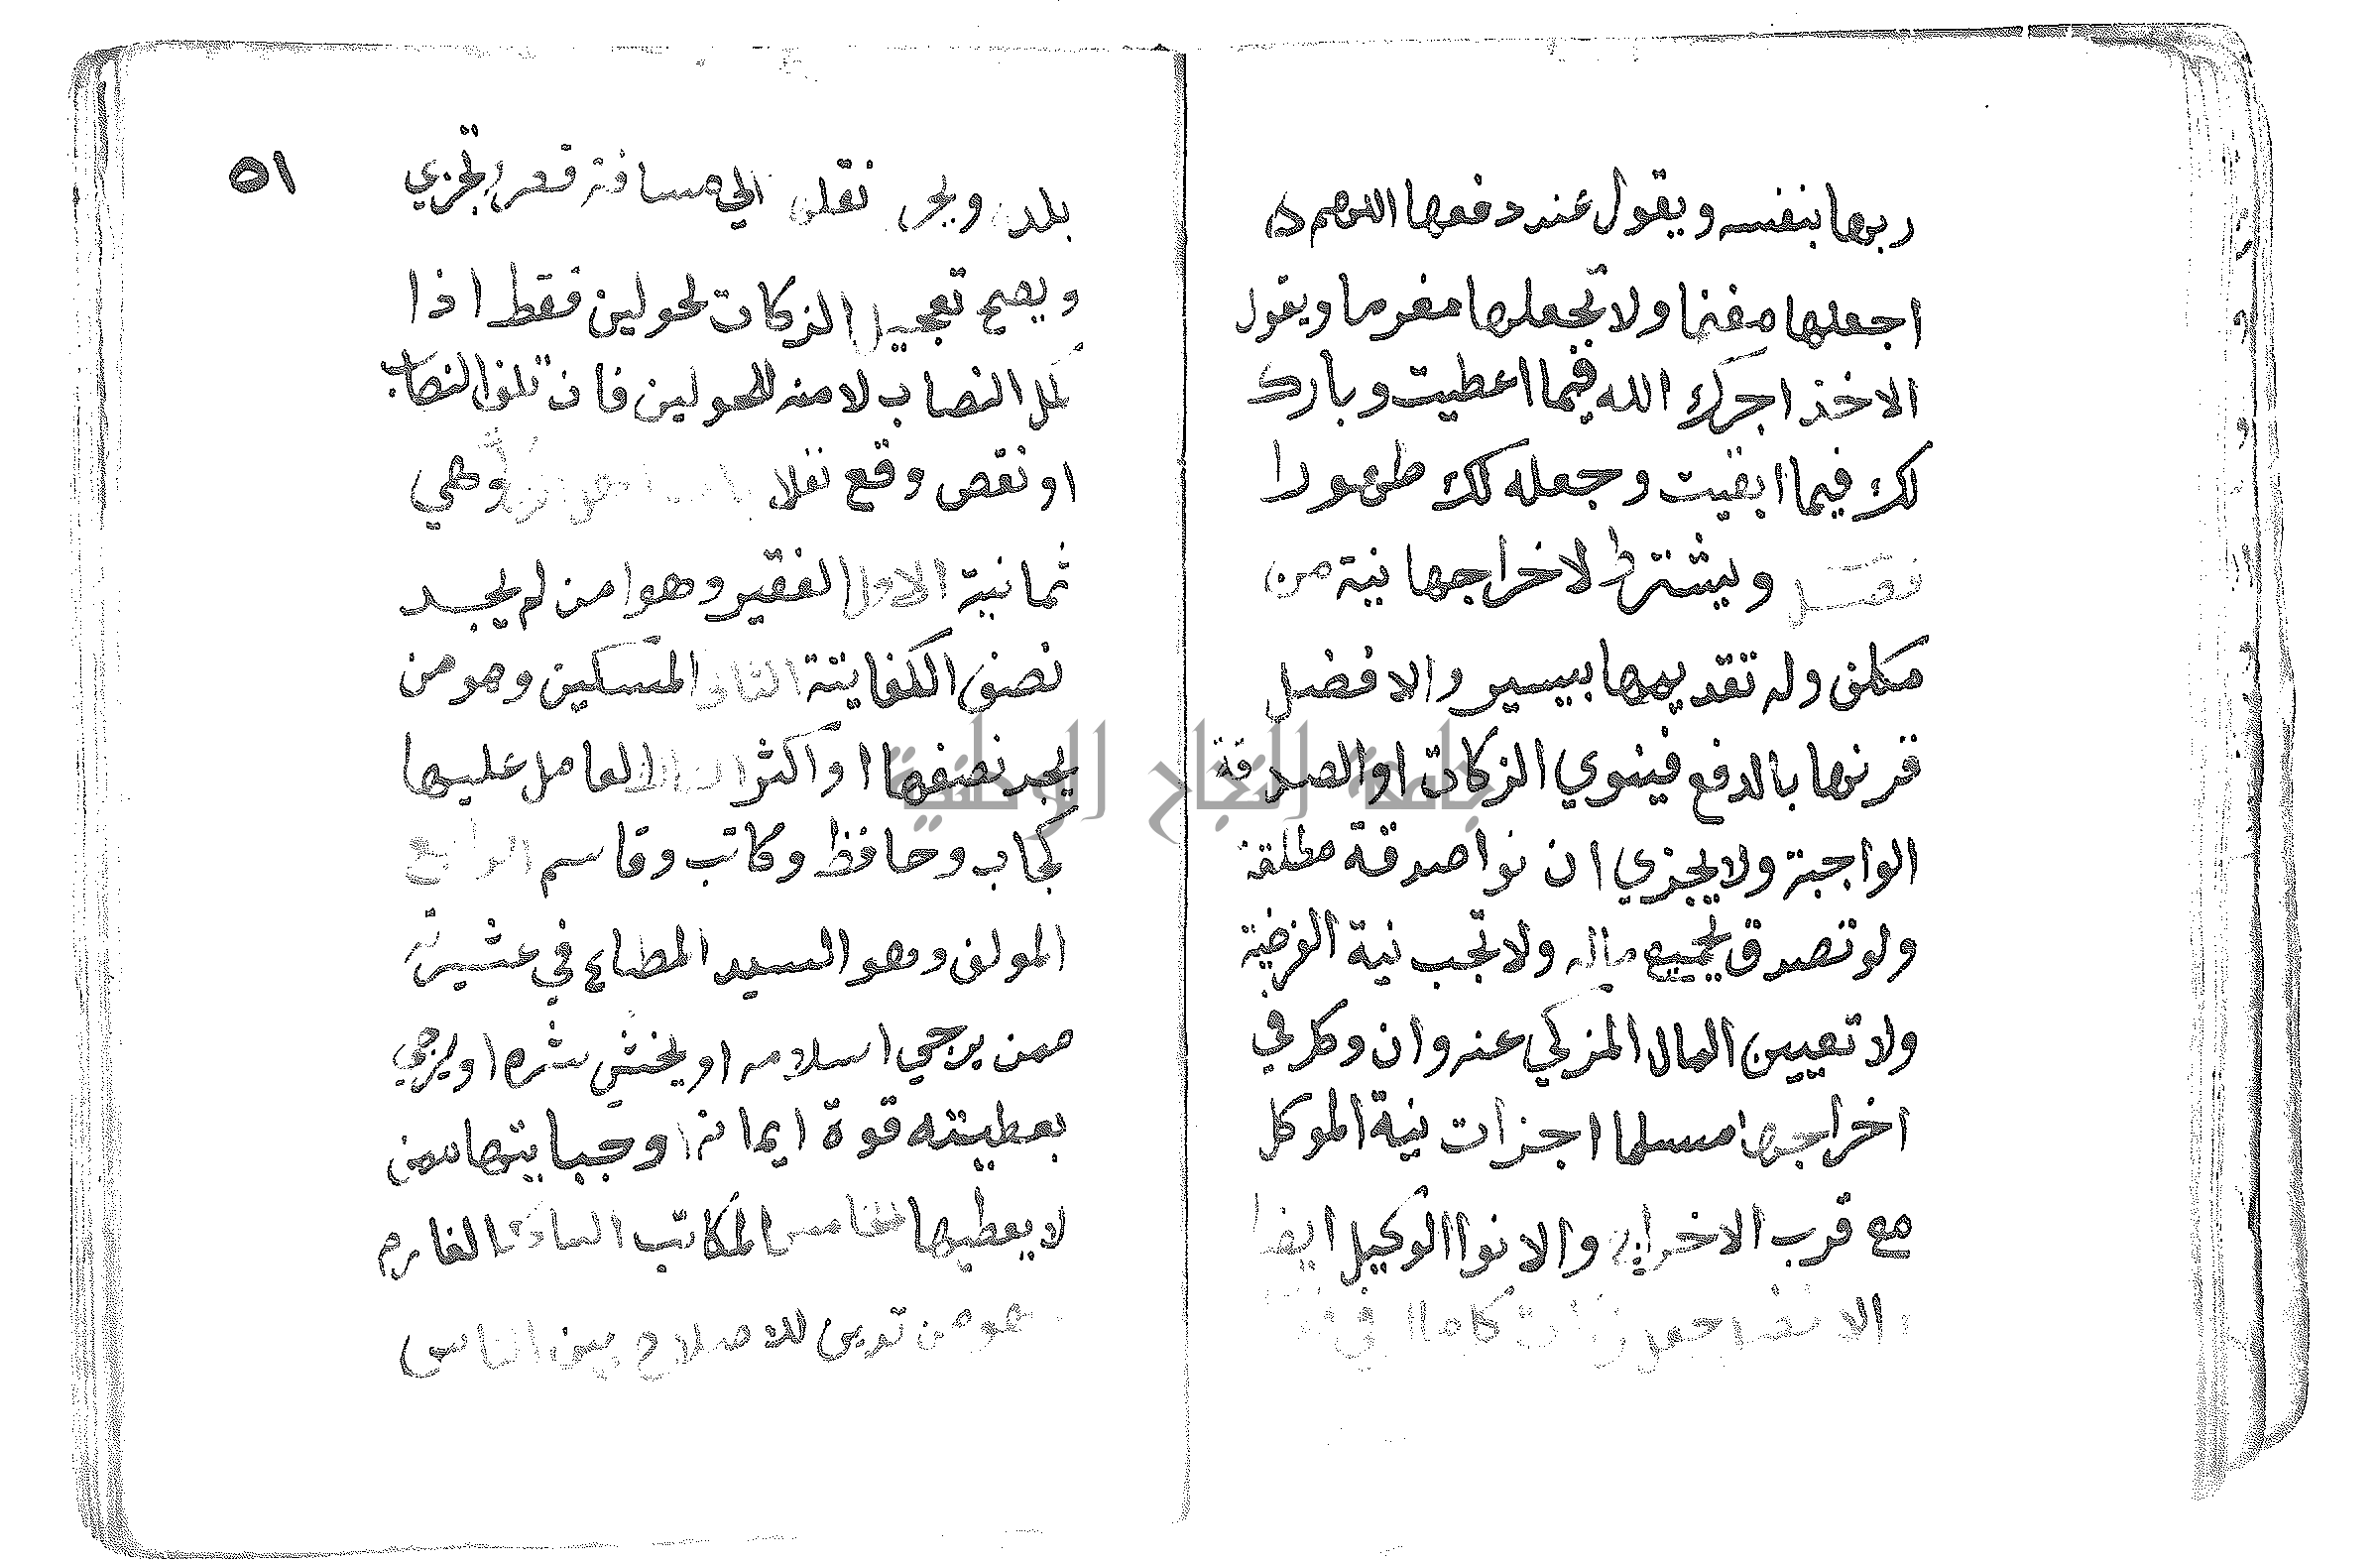 ربها بنفسه ويقول عند دفعها اللهم
اجعلها مغنما ولا تجعلها مغرما ويقول
الاخذ اجرك الله فيما اعطيت وبارك
لك فيما ابقيت وجعله لك طهورا
فصل ويشترط لاخراجها نية من
مكلف وله تقديمها بيسير والافضل
قرنها بالدفع فينوي الزكات او الصدقة
الواجبة ولا يجزي ان نوا صدقة مطلقة
ولو تصدق بجميع ماله ولا تجب نية الفرضية
ولا تعيين المال المزكي عنه وان وكل في
اخراجها مسلما اجزات نية الموكل
مع قرب الاخراج والا نوا الوكيل ايضا
والافضل جعل زكات كل مال في
٥١
بلده ويحرم نقلها الي مسافة قصر وتجزي
ويصح تعجيل الزكات لحولين فقط اذا
كمل النصاب لا منه للحولين فان تلف النصاب
او نقص وقع نفلا وهي
ثمانية الاول الفقير وهوا من لم يجد
نصف الكفايته الثاني المسكين وهو من
يجد نصفها او اكثر الثالث العامل عليها
كجاب وحافظ وكاتب وقاسم الرابع
المولف وهو السيد المطاع في عشيرته
ممن يرجي اسلامه او يخشي شره او يرجي
بعطيته قوة ايمانه او جبايتها ممن
لا يعطيها الخامس المكاتب السادس الغارم
وهو من تدين للاصلاح بين الناس
جامعة النجاح الوطنية